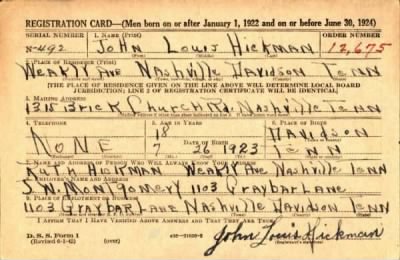 REGISTRATION CARD—(Men born on or after January 1, 1922 and on or before June 30, 1924)
SERIAL NUMBER 1. NAME (Print) ORDER NUMBER
N-492 JOHN LOUIS HICKMAN 12,675
2. PLACE OF RESIDENCE (Print)
WEAKLY AVE NASHVILLE DAVIDSON TENN
[THE PLACE OF RESIDENCE GIVEN ON THE LINE ABOVE WILL DETERMINE LOCAL BOARD
JURISDICTION; LINE 2 OF REGISTRATION CERTIFICATE WILL BE IDENTICAL]
3. MAILING ADDRESS
BRICK CHURCH RD. NASHVILLE TENN
4. TELEPHONE 5. AGE IN YEARS
18 DAVIDSON
NONE DATE OF BIRTH
7 26 1923 TENN
7. NAME AND ADDRESS OF PERSON WHO WILL ALWAYS KNOW YOUR ADDRESS
HICKMAN WEAKLY AVE NASHVILLE TENN
8. EMPLOYER'S NAME AND ADDRESS
S.N. MONTGOMERY 1103 GRAYBAR LANE
9. PLACE OF EMPLOYMENT OR BUSINESS
1103 GRAYBAR LANE NASHVILLE DAVIDSON TENN
I AFFIRM THAT I HAVE VERIFIED ABOVE ANSWERS AND THAT THEY ARE TRUE.
D. S. S. Form 1
(Revised 6-1-42) (over)
John Louis Hickman